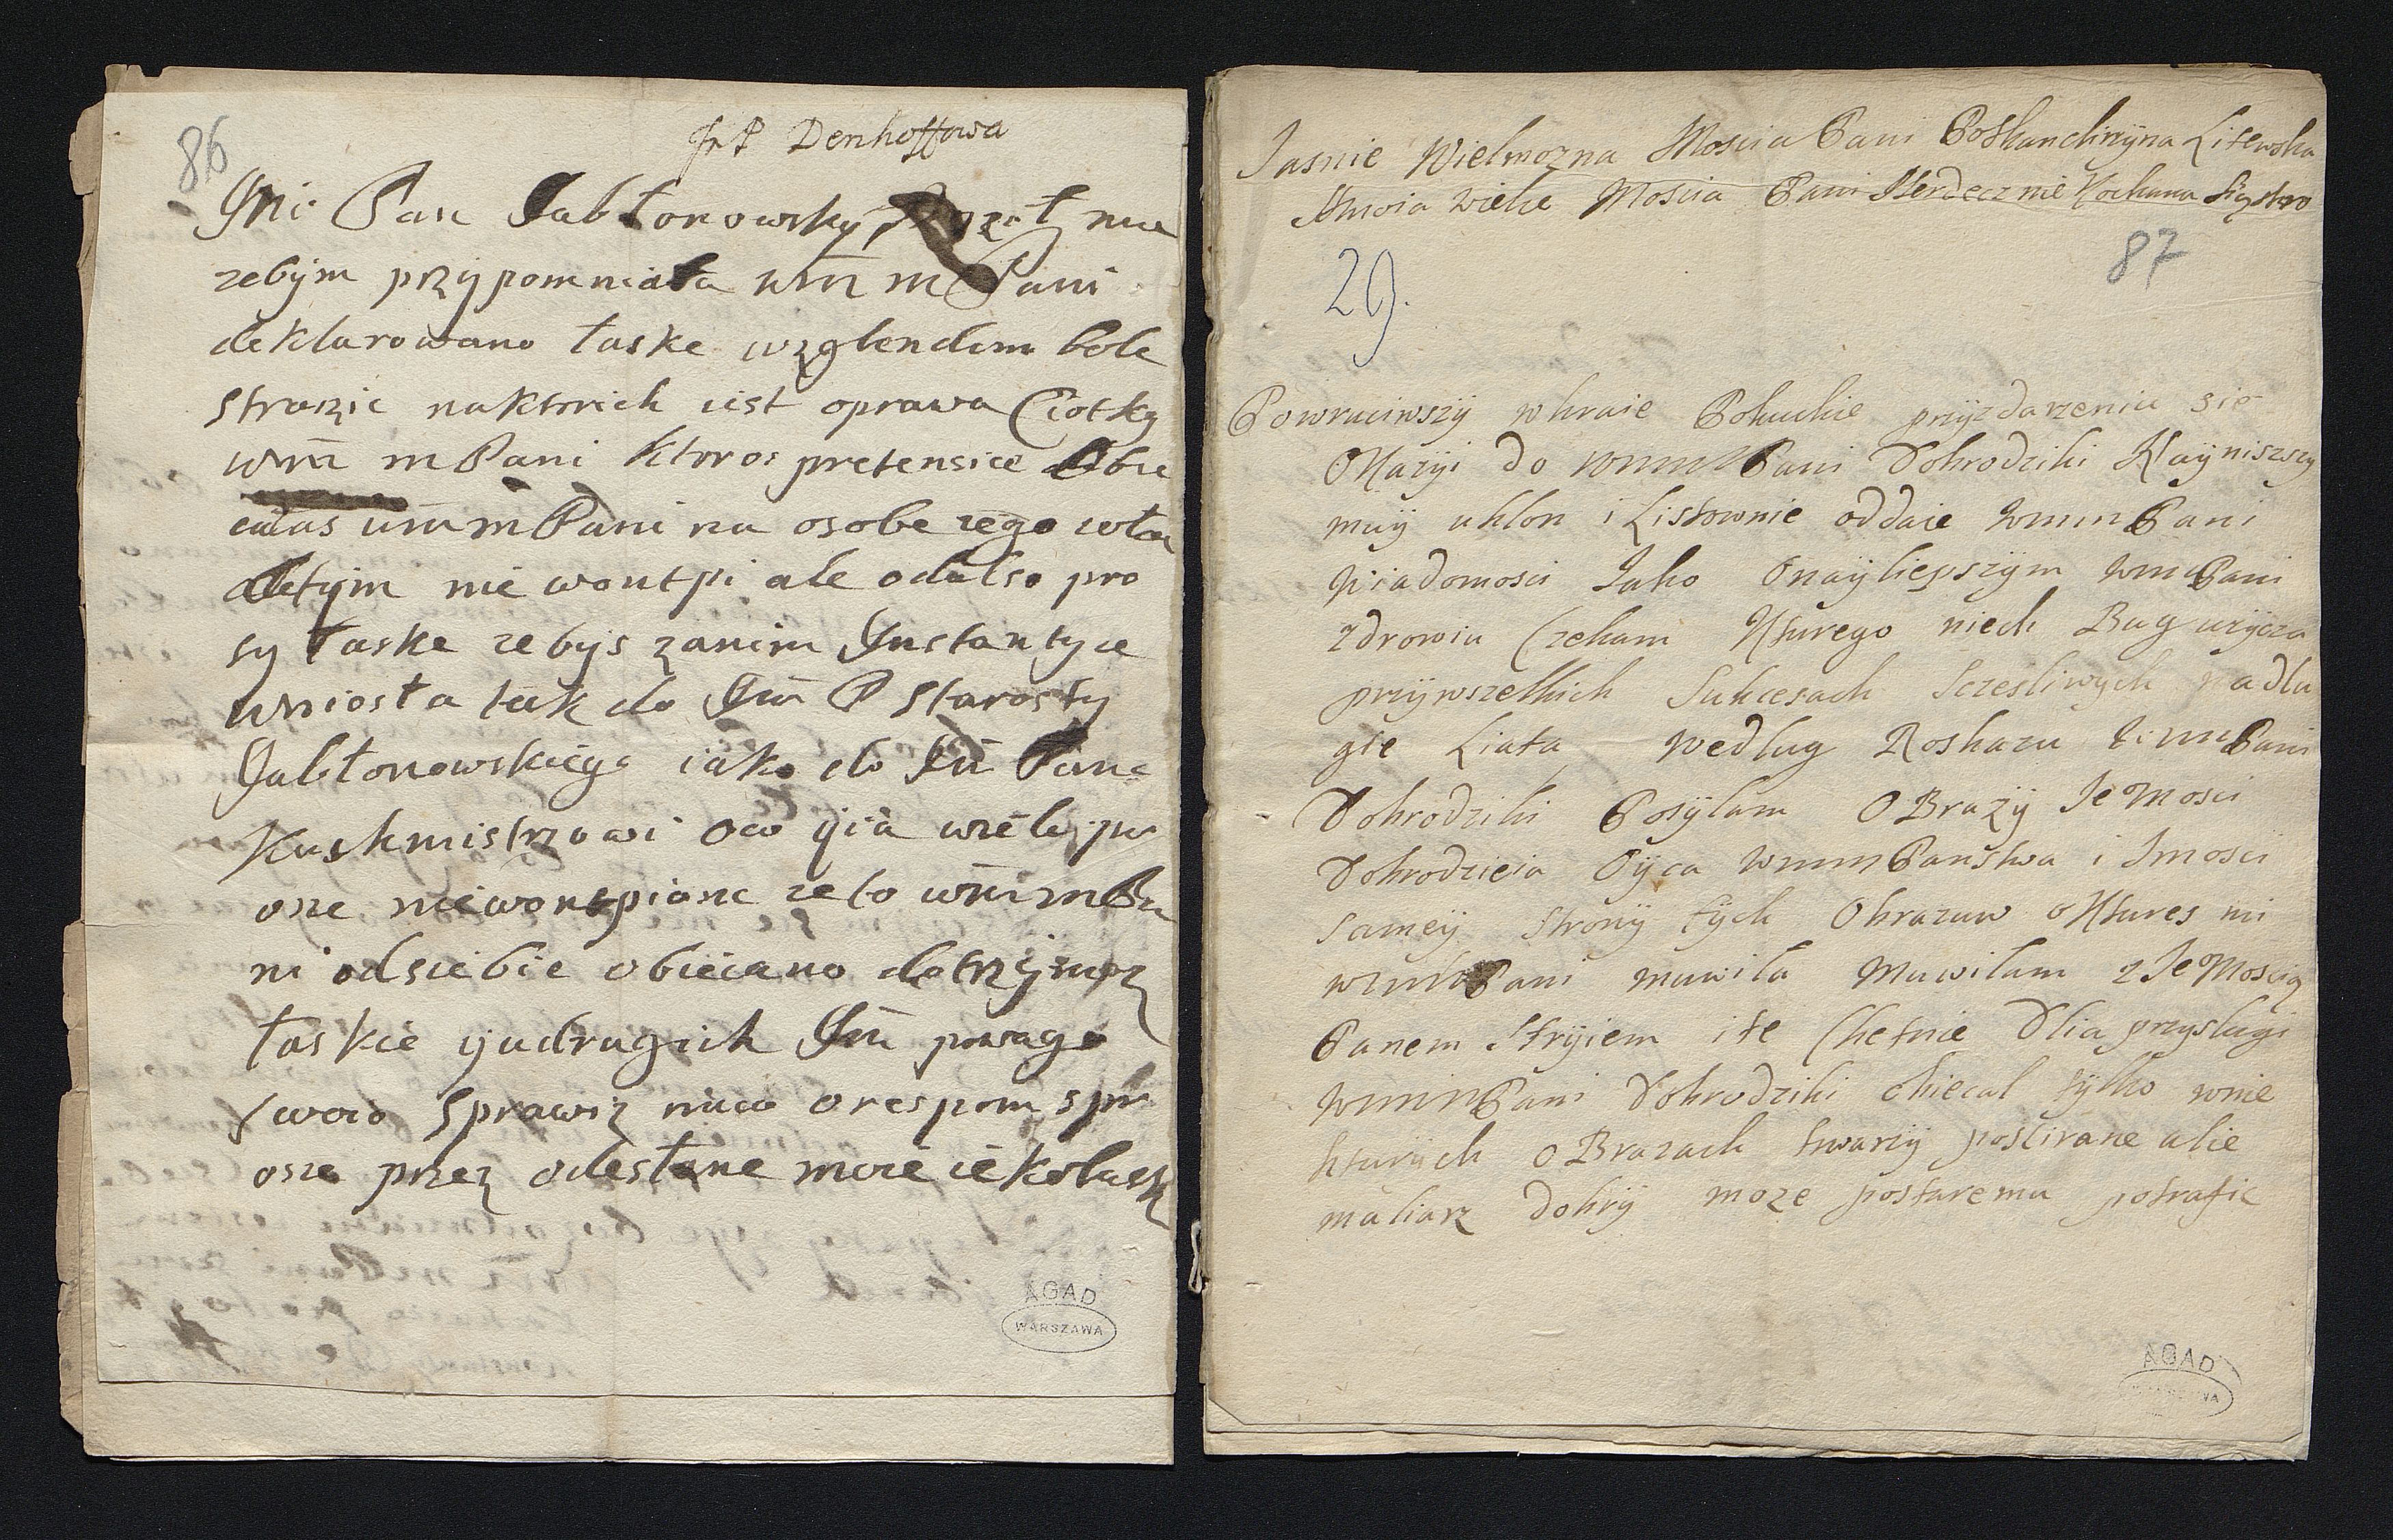 86
JP Denhoffowa
Jmc Pan Jabłonowsky mie
zebym przypomniała wm̃ m Pani
deklarowano łaske wzglendem bole
straszic naktorich iest oprawa Ciotky
wm̃ m Pani ktoros pretensice Obie
całas wm̃ m Pani na osobe iego wła
Oletym nie wontpi ale odalso pro
sy łaske zebys zanim Instantyie
wniosła tak do Jm̃ P Starosty
Jabłonowskiego iako do Jm̃ Pana
Kuchmistrzowi oco yia wiely pr
osze niewontpianc ze to wm̃ m Pa
ni odsiebie obiecano dotrzyma
łaskie yudrugich Jm̃ powago
swoio Sprawiz o respons pr
osze przez odesłane moie
AGAD
WARSZAWA
Jasnie Wielmozna Moscia Pani Potkanclirzyna Litewska
Mnoia Wielce Moscia Pani Serdecznie Kochana Siystro
87
29.
Powruciwszÿ w kraie Poludkie przÿzdarzeniu sie
OKazÿi do wmm Pani Dobrodziki Naÿniszszy
muÿ uklon i Listownie oddaie wmm Pani
Wiadomosci Jako Onaÿliepszÿm wm Pani
zdrowiu Czekam Kturego niech Bug uzÿcza
przÿwszelkich Sukcesach Sczesliwÿch nadlu
gie Liata Wedlug Roskazu wmm Pani
Dobrodziki Posÿlam OBrazÿ JeMosci
Dobrodzieia Oÿca wmm Panstwa i Jmosci
Sameÿ Stronÿ tÿch Obrazuw oKtures mi
wmm Pani muwila Muwilam z JeMoscią
Panem Strÿiem i te Chetnie Dlia przyslugi
wmm Pani Dobrodziki obiecal tÿlko wnie
kturÿch OBrazach twarzÿ poscirane alie
maliarz dobrÿ moze postaremu potrafic
AGAD